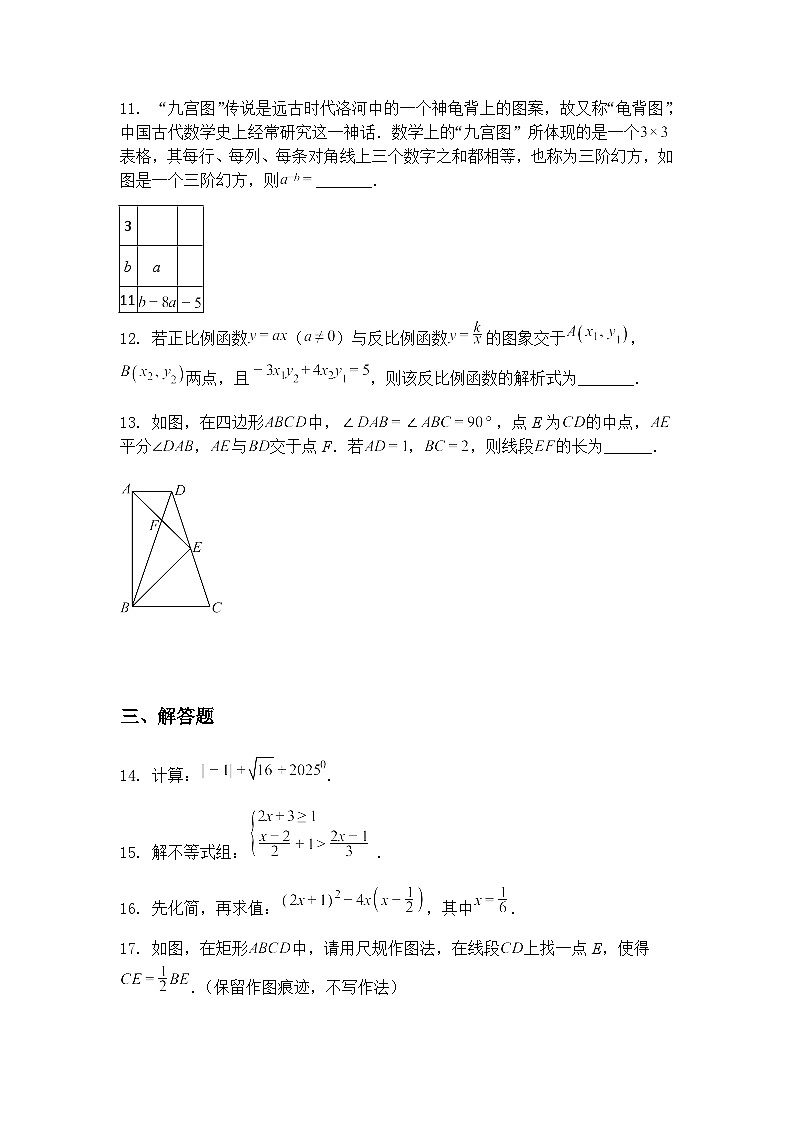 11. “九宫图”传说是远古时代洛河中的一个神龟背上的图案，故又称“龟背图”，
中国古代数学史上经常研究这一神话．数学上的“九宫图”所体现的是一个3×3
表格，其每行、每列、每条对角线上三个数字之和都相等，也称为三阶幻方，如
图是一个三阶幻方，则a⁻ᵇ=_______．
3
b a
11 b−8a −5
12. 若正比例函数y=ax（a≠0）与反比例函数y=k/x的图象交于A(x₁, y₁)，
B(x₂, y₂)两点，且−3x₁y₂+4x₂y₁=5，则该反比例函数的解析式为_______．
13. 如图，在四边形ABCD中，∠DAB=∠ABC=90°，点E为CD的中点，AE
平分∠DAB，AE与BD交于点F．若AD=1，BC=2，则线段EF的长为______．
A D
F
E
B C
三、解答题
14. 计算：|−1|+√16+2025⁰．
15. 解不等式组：{2x+3≥1
(x−2)/2+1>(2x−1)/3．
16. 先化简，再求值：(2x+1)²−4x(x−1/2)，其中x=1/6．
17. 如图，在矩形ABCD中，请用尺规作图法，在线段CD上找一点E，使得
CE=1/2BE．（保留作图痕迹，不写作法）